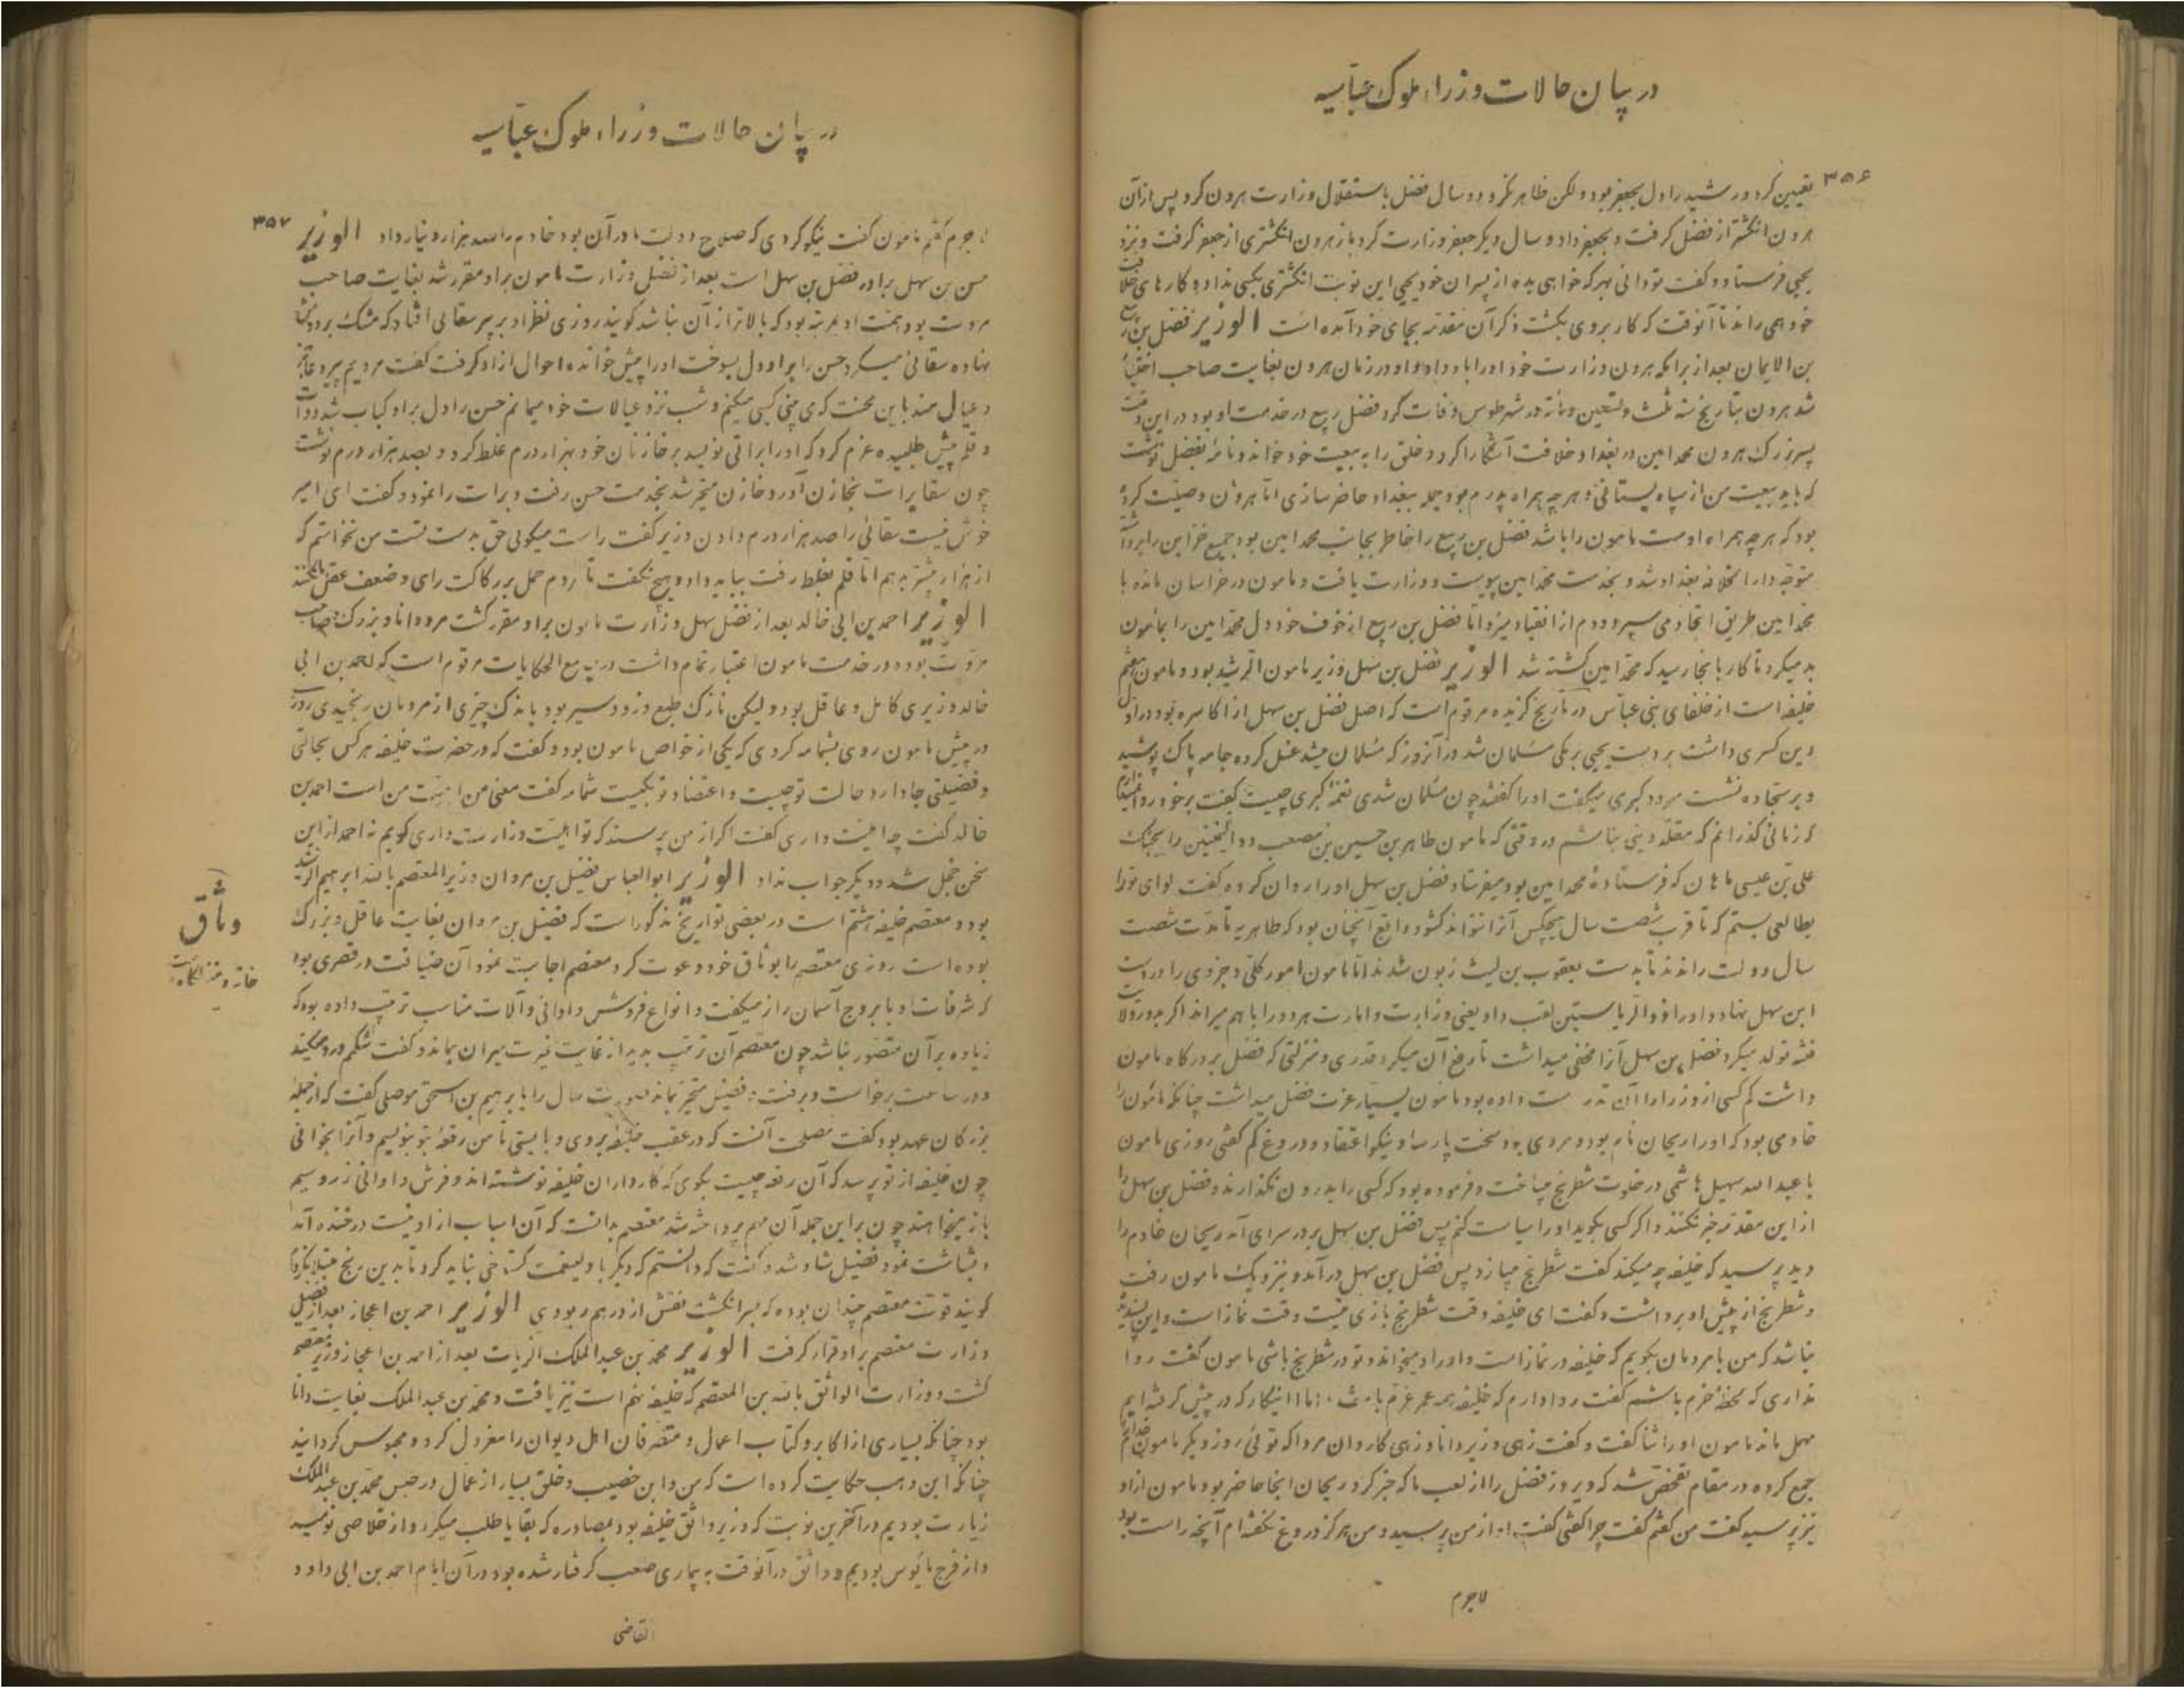 در بیان حالات وزراء ملوک عباسیه
۳۵۶
تعیین کرد و رشید را دل بجعفر بود ولکن ظاهر نکرد و دو سال فضل باستقلال وزارت هرون کرد پس از آن
هرون انگشتر از فضل گرفت و بجعفر داد و سال دیگر جعفر وزارت کرد باز هرون انگشتری از جعفر گرفت و نزد
یحیی فرستاد و گفت تو دانی بهر که خواهی بده از پسران خود یحیی این نوبت انگشتری بکسی نداد و کارهای خلافت
خود همی راند تا آنوقت که کار بر وی بگشت ذکر آن مقدمه بجای خود آمده است الوزیر فضل بن ربیع
بن الایمان بعد از برامکه هرون وزارت خود او را باو داد و او در زمان هرون بغایت صاحب اختیار
شد هرون بتاریخ سنه ثلث و تسعین و مأته در شهر طوس وفات کرد فضل ربیع در خدمت او بود در این وقت
پسر بزرگ هرون محمد امین در بغداد خلافت آشکارا کرد و خلق را به بیعت خود خواند و نامه بفضل نوشت
که باید بیعت من از سپاه بستانی و هر چه همراه پدرم بود جمله ببغداد حاضر سازی اما هرون وصیت کرده
بود که هر چه همراه اوست مامون را باشد فضل بن ربیع را خاطر بجانب محمد امین بود جمیع خزاین را برداشت
متوجه دار الخلافه بغداد شد و بخدمت محمد امین پیوست و وزارت یافت و مامون در خراسان مانده با
محمد امین طریق اتحاد می سپرد و دم از انقیاد میزد اما فضل بن ربیع از خوف خود دل محمد امین را بمأمون
بد میکرد تا کار بانجا رسید که محمد امین کشته شد الوزیر فضل بن سهل وزیر مامون الرشید بود و مامون هفتم
خلیفه است از خلفای بنی عباس در تاریخ گزیده مرقوم است که اصل فضل بن سهل از اکاسره بود در اول
دین کسری داشت بر دست یحیی برمکی مسلمان شد در آنروز که مسلمان میشد غسل کرده جامه پاک پوشید
و بر سجاده نشست سرود کبری میگفت او را گفتند چون مسلمان شدی نغمه کبری چیست گفت بر خود روا نمیدارم
که زمانی گذرانم که مقلد دینی نباشم در وقتی که مامون طاهر بن حسین بن مصعب ذو الیمینین را بجنگ
علی بن عیسی ماهان که فرستادهٔ محمد امین بود میفرستاد فضل بن سهل او را روان کرده گفت لوای تو را
بطالعی بستم که تا قرب شصت سال هیچکس آنرا نتواند گشود و واقع آنچنان بود که طاهریه تا مدت شصت
سال دولت راندند تا بدست یعقوب بن لیث زبون شدند اما مامون امور کلی و جزوی را در دست
ابن سهل نهاد و او را ذو الریاستین لقب داد یعنی وزارت و امارت هر دو را با هم میراند اگر بدو ولایت
فتنه تولد میکرد فضل بن سهل آنرا مخفی میداشت تا رفع آن میکرد قدری و منزلتی که فضل بر درگاه مامون
داشت کم کسی از وزرا را آن قدر دست داده بود مامون بسیار عزت فضل میداشت چنانکه مأمون را
خادمی بود که او را ریحان نام بود و مردی بود سخت پارسا و نیکو اعتقاد و دروغ کم گفتی روزی مامون
با عبد الله سهیل هاشمی در خلوت شطرنج میباخت و فرموده بود که کسی را بدرون نگذارند و فضل بن سهل را
از این مقدمه خبر نکنند و اگر کسی بگوید او را سیاست کنم پس فضل بن سهل بر در سرای آمد ریحان خادم را
دید پرسید که خلیفه چه میکند گفت شطرنج میبازد پس فضل بن سهل درآمد و نزدیک مامون رفت
و شطرنج از پیش او برداشت و گفت ای خلیفه وقت شطرنج بازی نیست وقت نماز است و این پسندیده
نباشد که من با مردمان بگویم که خلیفه در نماز است و اوراد میخواند و تو در شطرنج باشی مامون گفت روا
نداری که لحظه خرم باشم گفت روا دارم که خلیفه همه عمر خرم باشد اما اینکار که در پیش گرفته ایم
مهمل ماند مامون او را ثنا گفت و گفت زهی وزیر دانا و زهی کاردان مردا که توئی روز دیگر مامون خدم را
جمع کرده در مقام تفحص شد که دیروز فضل را از لعب ما که خبر کرد ریحان آنجا حاضر بود مامون ازاو
نیز پرسید گفت من گفتم گفت چرا گفتی گفت او از من پرسید و من هرگز دروغ نگفته ام آنچه راست بود
لاجرم
در بیان حالات وزراء ملوک عباسیه
۳۵۷
لاجرم گفتم مامون گفت نیکو کردی که صلاح دولت ما در آن بود خادم را صد هزار دینار داد الوزیر
حسن بن سهل برادر فضل بن سهل است بعد از فضل وزارت مامون بر او مقرر شد بغایت صاحب
مروت بود و همت او بمرتبه بود که بالاتر از آن نباشد گویند روزی نظر او بر پیر سقائی افتاد که مشک بر دوش
نهاده سقائی میکرد حسن را بر او دل بسوخت او را پیش خوانده احوال ازاو گرفت گفت مردیم پیر و عاجز
و عیال مند باین محنت که می بینی کسبی میکنم و شب نزد عیالات خود میمانم حسن را دل بر او کباب شد دوات
و قلم پیش طلبیده عزم کرد که او را براتی نویسد بر خازنان خود بهزار درم غلط کرد و بصد هزار درم نوشت
چون سقا برات بخازن آورد خازن متحیر شد بخدمت حسن رفت و برات را نمود و گفت ای امیر
خوش نیست سقائی را صد هزار درم دادن وزیر گفت راست میگوئی حق بدست تست من نخواستم که
از هزار بیشتر بدهم اما قلم بغلط رفت بباید داد و هیچ نگفت تا مردم حمل بر رکاکت رای و ضعف عقل ما نکنند
الوزیر احمد بن ابی خالد بعد از فضل سهل وزارت مامون بر او مقرر گشت مرد دانا و بزرگ و صاحب
مروت بود و در خدمت مامون اعتبار تمام داشت در جامع الحکایات مرقوم است که احمد بن ابی
خالد وزیری کامل و عاقل بود ولیکن نازک طبع و زود سیر بود باندک چیزی از مردمان رنجیدی روزی
در پیش مامون روی بثمامه کردی که یکی از خواص مامون بود و گفت که در حضرت خلیفه هر کس بحالتی
و فضیلتی جا دارد حالت تو چیست و اعتضاد تو بکیست ثمامه گفت معنی من اهلیت من است احمد بن
خالد گفت چه اهلیت داری گفت اگر از من پرسند که تو اهلیت وزارت داری گویم نه احمد از این
سخن خجل شد و دیگر جواب نداد الوزیر ابو العباس فضیل بن مروان وزیر المعتصم بالله ابرهیم الرشید
بود و معتصم خلیفه هشتم است در بعضی تواریخ مذکور است که فضیل بن مروان بغایت عاقل و بزرگ
بوده است روزی معتصم را بوثاق خود دعوت کرد معتصم اجابت نمود آن ضیافت در قصری بود
که شرفات او با بروج آسمان راز میگفت و انواع فروش و اوانی و آلات مناسب ترتیب داده بود که
زیاده بر آن متصور نباشد چون معتصم آن ترتیب بدید از غایت غیرت حیران بماند و گفت شکمم درد میکند
و در ساعت برخاست و برفت فضیل متحیر بماند صورت حال را با برهیم بن اسحق موصلی گفت که از جمله
بزرگان عهد بود گفت مصلحت آنست که در عقب خلیفه بروی و بایستی تا من رقعه بتو بنویسم و آنرا بخوانی
چون خلیفه از تو پرسد که آن رقعه چیست بگوی که کارداران خلیفه نوشته اند و فرش و اوانی زر و سیم
باز میخواهند چون بر این جمله آن مهم پرداخته شد معتصم بدانست که آن اسباب از او نیست در خنده آمد
و بشاشت نمود فضیل شاد شد و گفت که دانستم که دیگر با ولینعمت گستاخی نباید کرد تا بدین رنج مبتلا نگردد
گویند قوت معتصم چندان بوده که بسر انگشت نقش از درهم ربودی الوزیر احمد بن اعجاز بعد از فضیل
وزارت معتصم بر او قرار گرفت الوزیر محمد بن عبد الملک الزیات بعد از احمد بن اعجاز وزیر معتصم
گشت و وزارت الواثق بالله بن المعتصم که خلیفه نهم است نیز یافت و محمد بن عبد الملک بغایت دانا
بود چنانکه بسیاری از اکابر و کتاب اعمال و متصرفان اهل دیوان را معزول کرد و محبوس گردانید
چنانکه ابن وهب حکایت کرده است که من و ابن خصیب و خلق بسیار از عمال در حبس محمد بن عبد الملک
زیات بودیم در آخرین نوبت که وزیر واثق خلیفه بود بمصادره که بقایا طلب میکرد و از خلاصی نومید
و از فرج مأیوس بودیم و واثق در آنوقت به بیماری صعب گرفتار شده بود در آن ایام احمد بن ابی داود
وثاق
القاضی